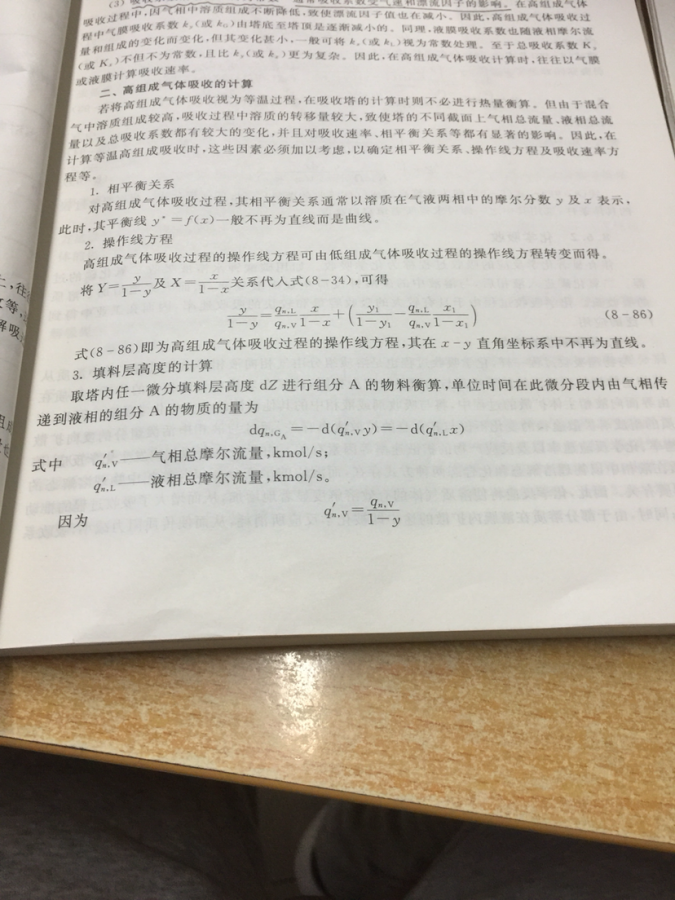 受气速和漂流因子的影响。在高组成气体
吸收过程中,因气相中溶质组成不断降低,致使漂流因子值也在减小。因此,高组成气体吸收过
程中气膜吸收系数 k_y(或 k_G)由塔底至塔顶是逐渐减小的。同理,液膜吸收系数也随液相摩尔流
量和组成的变化而变化,但其变化甚小,一般可将 k_x(或 k_L)视为常数处理。至于总吸收系数 K_y
(或 K_x)不但不为常数,且比 k_y(或 k_x)更为复杂。因此,在高组成气体吸收计算时,往往以气膜
或液膜计算吸收速率。
二、高组成气体吸收的计算
若将高组成气体吸收视为等温过程,在吸收塔的计算时则不必进行热量衡算。但由于混合
气中溶质组成较高,吸收过程中溶质的转移量较大,致使塔的不同截面上气相总流量、液相总流
量以及总吸收系数都有较大的变化,并且对吸收速率、相平衡关系等都有显著的影响。因此,在
计算等温高组成吸收时,这些因素必须加以考虑,以确定相平衡关系、操作线方程及吸收速率方
程等。
1. 相平衡关系
对高组成气体吸收过程,其相平衡关系通常以溶质在气液两相中的摩尔分数 y 及 x 表示,
此时,其平衡线 y*=f(x)一般不再为直线而是曲线。
2. 操作线方程
高组成气体吸收过程的操作线方程可由低组成气体吸收过程的操作线方程转变而得。
将 Y=y/(1-y) 及 X=x/(1-x) 关系代入式(8-34),可得
y/(1-y)=(q_n,L/q_n,V) x/(1-x)+(y_1/(1-y_1)-(q_n,L/q_n,V) x_1/(1-x_1)) (8-86)
式(8-86)即为高组成气体吸收过程的操作线方程,其在 x-y 直角坐标系中不再为直线。
3. 填料层高度的计算
取塔内任一微分填料层高度 dZ 进行组分 A 的物料衡算,单位时间在此微分段内由气相传
递到液相的组分 A 的物质的量为
dq_n,G_A=-d(q′_n,V y)=-d(q′_n,L x)
式中 q′_n,V——气相总摩尔流量,kmol/s;
q′_n,L——液相总摩尔流量,kmol/s。
因为 q′_n,V=q_n,V/(1-y)